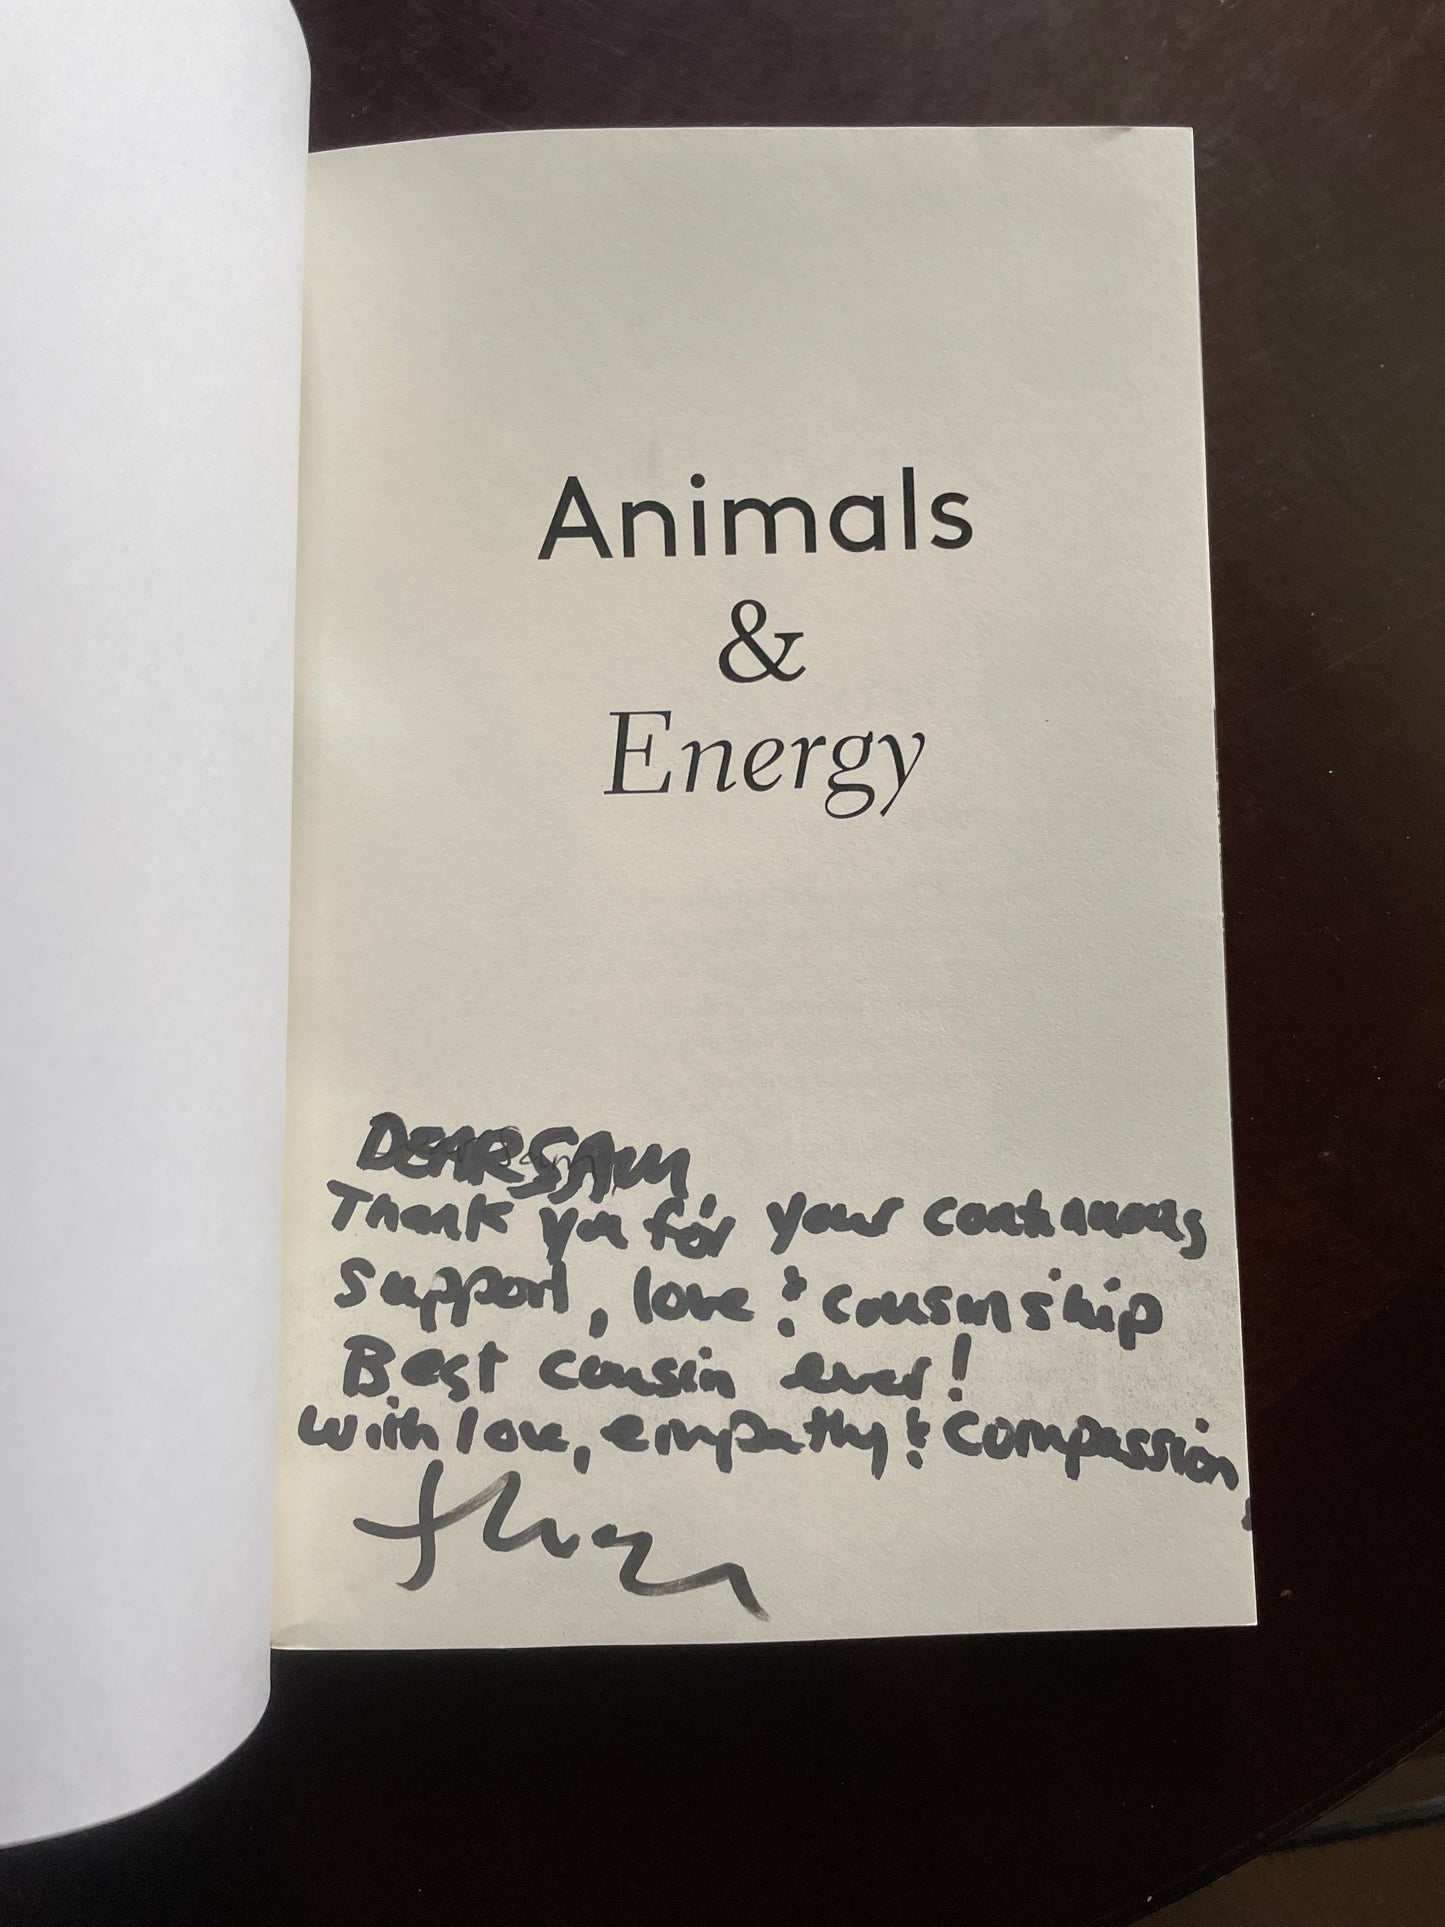 Animals
&
Energy
DEAR SAM
Thank you for your continuous
support, love & cousinship
Best cousin ever!
With love, empathy & compassion,